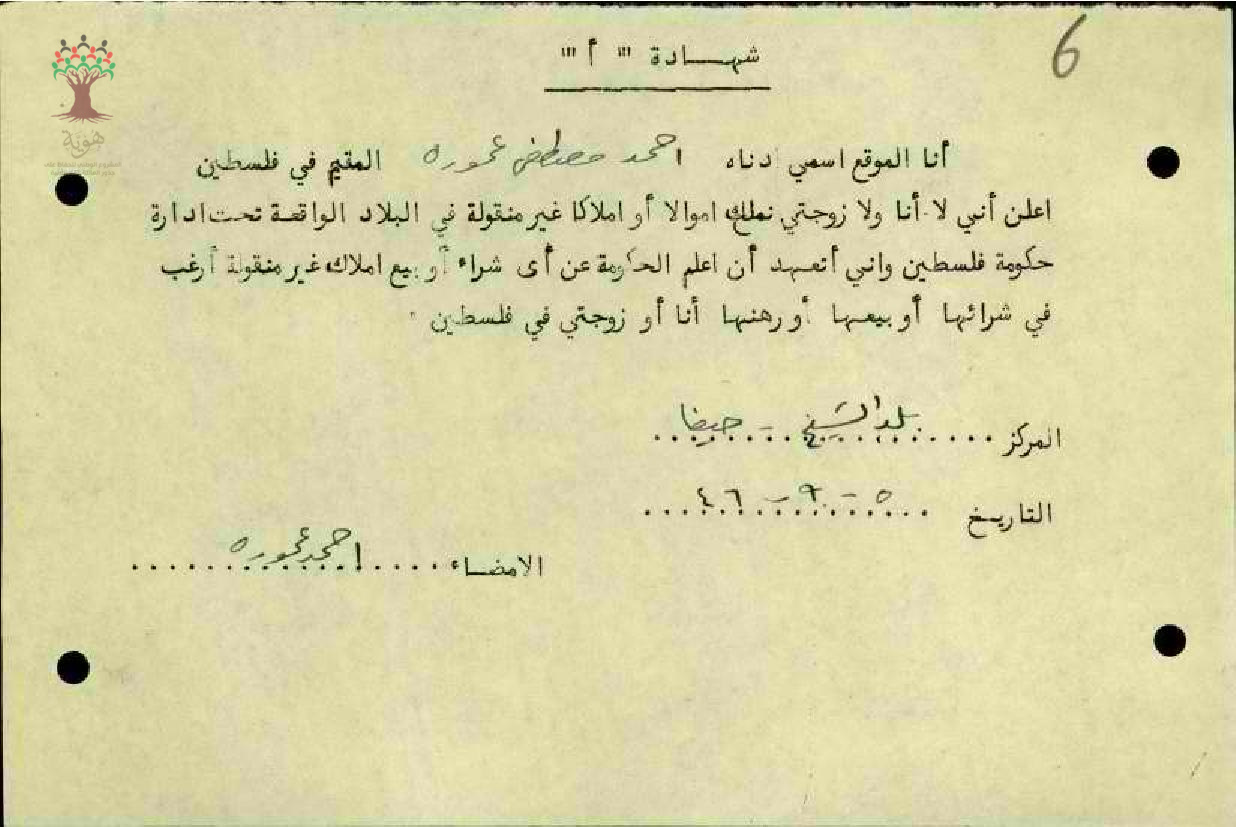 6
شهادة "" أ ""
أنا الموقع اسمي ادناه احمد مصطفى عموره المقيم في فلسطين
اعلن أنني لا أنا ولا زوجتي نملك اموالا أو املاكا غير منقولة في البلاد الواقعة تحت ادارة
حكومة فلسطين واني أتعهد أن اعلم الحكومة عن أى شراء أو بيع املاك غير منقولة أرغب
في شرائها أو بيعها أو رهنها أنا أو زوجتي في فلسطين .
المركز .... بلد الشيخ - حيفا ....
التاريخ .... ٥ - ٩ - ٤٦ ....
الامضاء .... احمد عموره ....
هوية